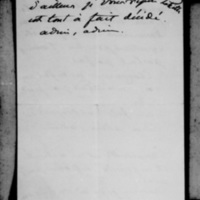 d'ailleurs je
est tout à fait décidé.
adieu, adieu.